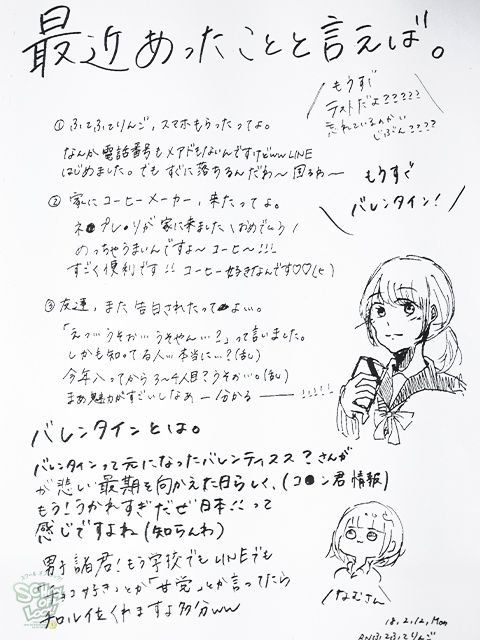 最近あったことと言えば。
もうすぐ
テストだよ?????
忘れているのかい
じぶん????
① ふてふてりんご、スマホもらったってよ。
なんか電話番号もメアドもないんですけどwwLINE
はじめました。でもすぐに落ちるんだわ〜困るわー
もうすぐ
バレンタイン!
② 家にコーヒーメーカー、来たってよ。
ネ●プレ●ソが家に来ました\おめでとう/
めっちゃうまいんですよ〜コーヒー!!!
すごく便利です!!コーヒー好きなんです♡♡(く
③ 友達、また告白されたってよぃ。
「えっ…うそぉ…うそやん…?」って言いました。
しかも知ってる人…本当に…?(乱)
今年入ってから3〜4人目?うそぉぃ。(乱)
まあ魅力がすごいしなあー分かるー!!!!!
バレンタインとは。
バレンタインって元になったバレンティヌス?さんが
が悲い最期を向かえた日らしく、(コ●ン君情報)
もう!うかれすぎだぜ日本!!って
感じですよね(知らんわ)
男子諸君!もう学校でもLINEでも
「チョコ好き」とか「甘党」とか言ってたら
チロル位くれますよ多分ww
なむさん
18.2.12.Mon
RNふてふてりんご